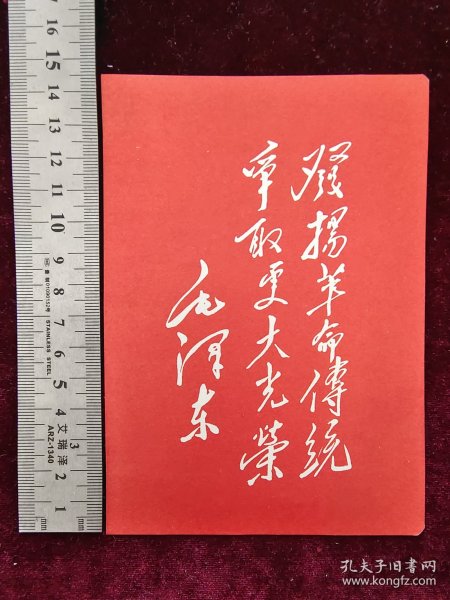 發揚革命傳統
爭取更大光榮
毛澤东
17
16
15
14
13
12
11
10
9
8
7
6
5
4
3
2
1
mm
mm
STAINLESS STEEL
艾瑞泽
ARZ-1340
孔夫子旧书网
www.kongfz.com